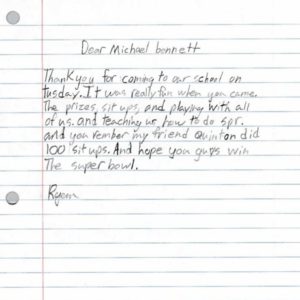 Dear Michael bennett
Thank you for coming to our school on
tusday. It was really fun when you came.
The prizes, sit ups, and playing with all
of us. and teaching us how to do spr.
and you rember my friend Quinton did
100 sit ups. And hope you guys win
The super bowl.
Ryan